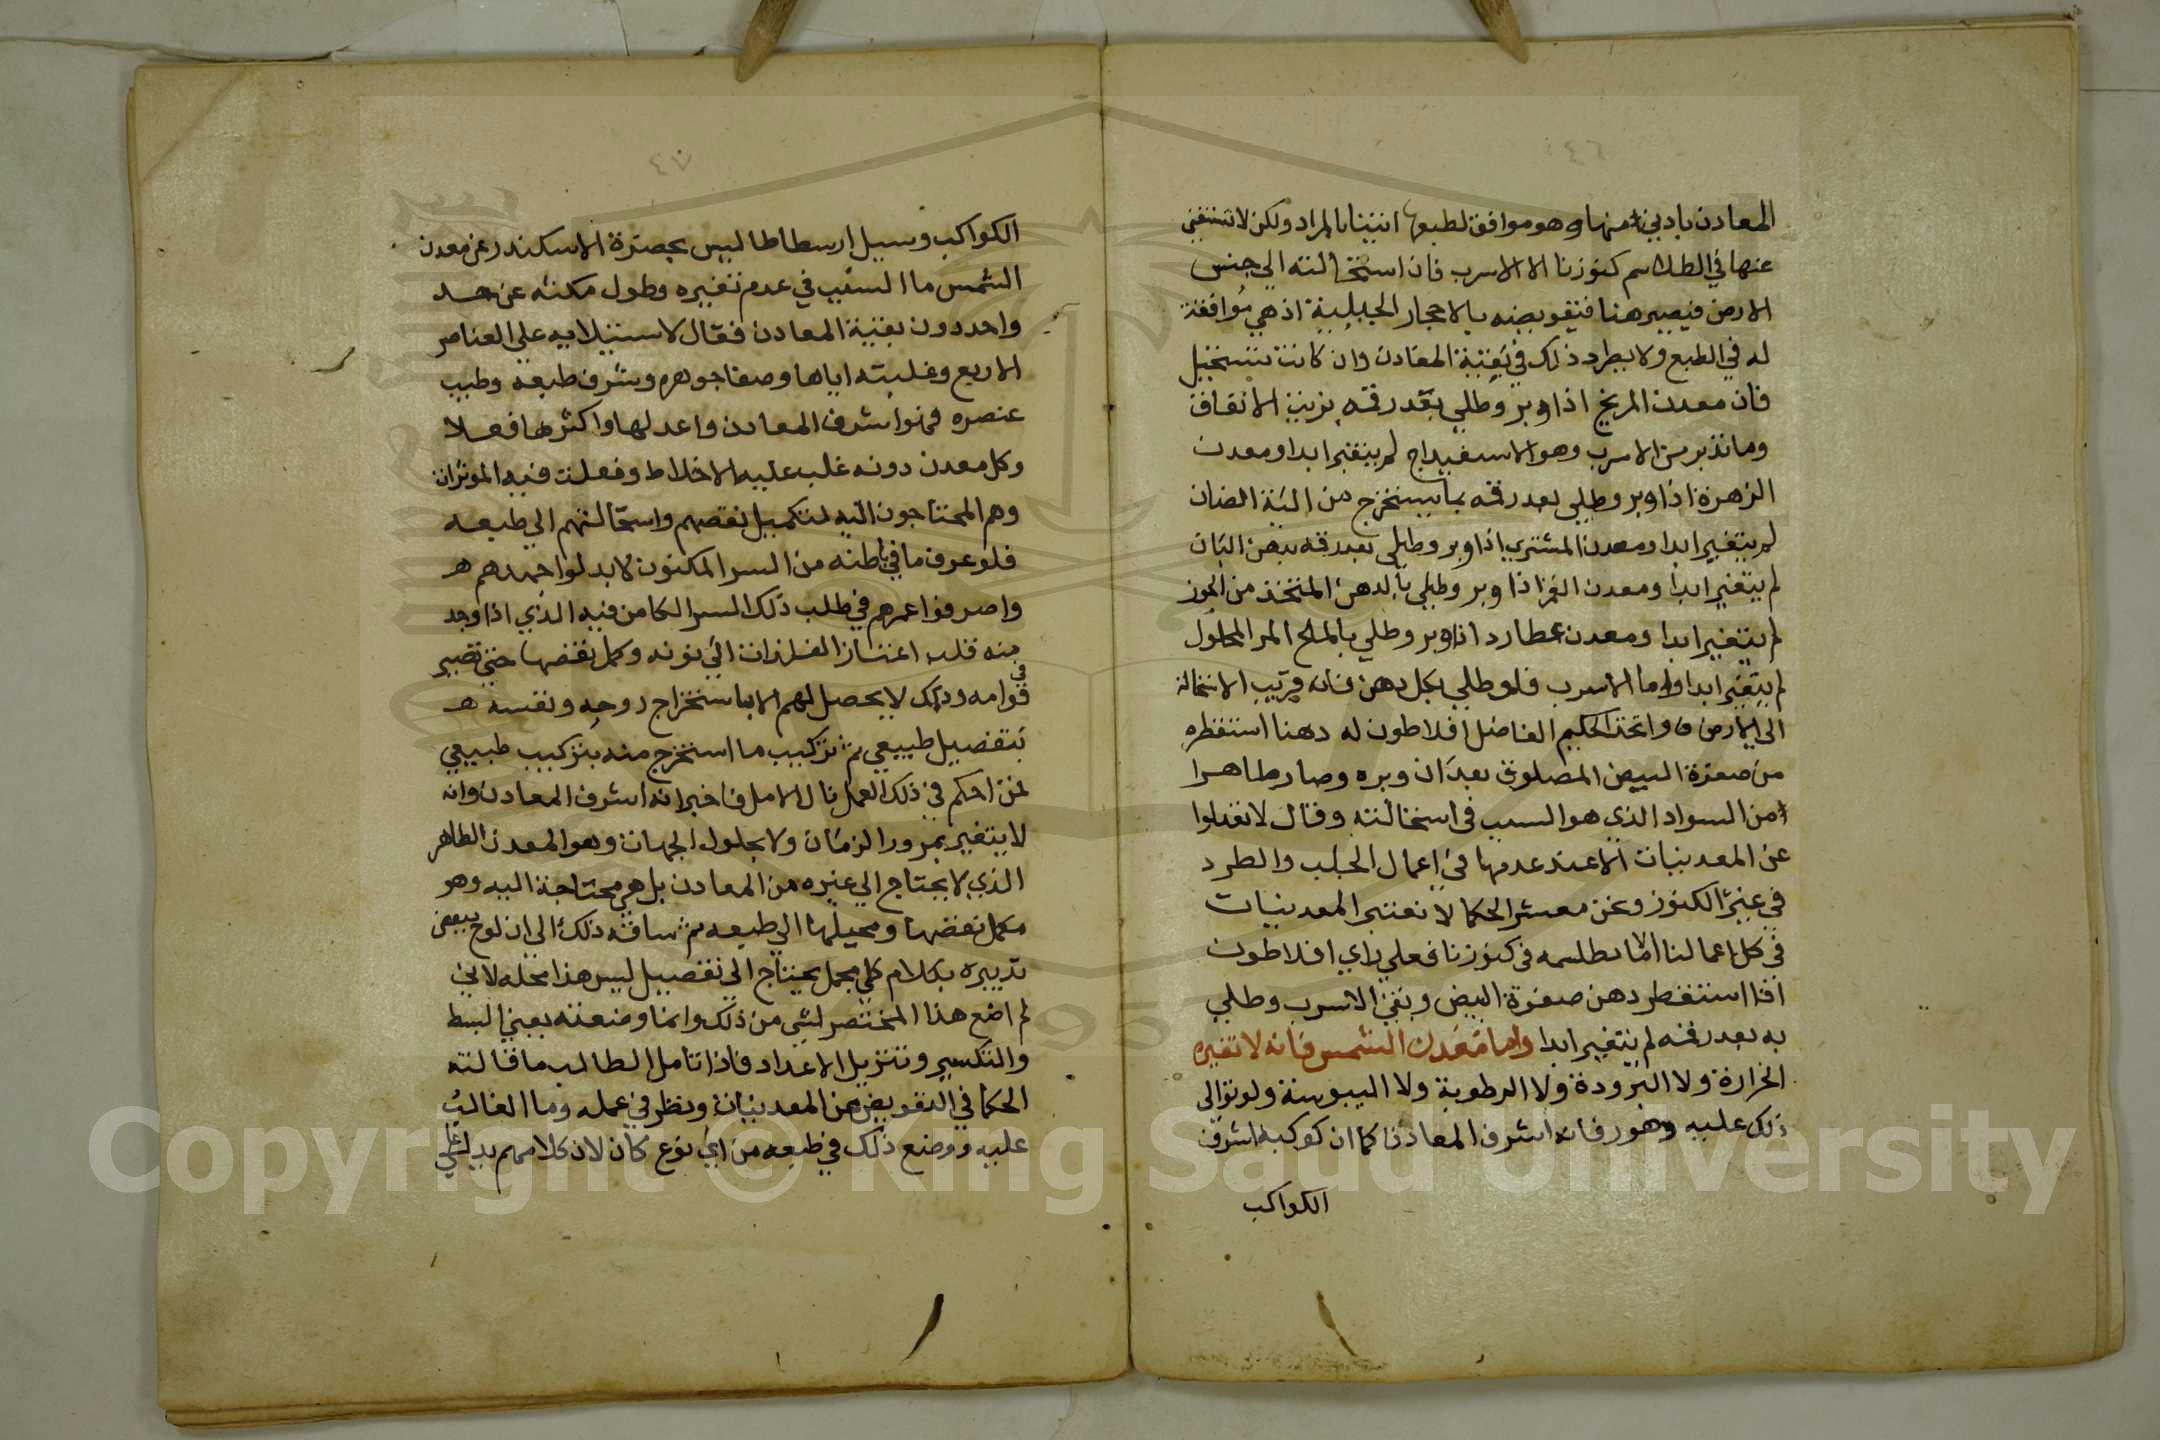 ٤٦
المعادن بادبي منها وهو موافق لطبعها اتينا بالمراد ولكن لا نستغني
عنها في الطلاسم كنوزنا الا الاسرب فان استحالته الي جنس
الارض فيصير هنا فتعويضه بالاحجار الجبلية اذ هي موافقة
له في الطبع ولا يطرد ذلك في بقية المعادن وان كانت تستحيل
فان معدن المريخ اذا وبر وطلي بعد رقمه بزيت الانفاق
وما تدبر من الاسرب وهو الاسفيداج لم يتغير ابدا ومعدن
الزهرة اذا وبر وطلي بعد رقمه بما يستخرج من الية الضان
لم يتغير ابدا ومعدن المشتري اذا وبر وطلي بعد رقمه بدهن البان
لم يتغير ابدا ومعدن القمر اذا وبر وطلي بالدهن المتخذ من الجوز
لم يتغير ابدا ومعدن عطارد اذا وبر وطلي بالملح المر المحلول
لم يتغير ابدا واما الاسرب فلو طلي بكل دهن فانه قريب الاستحالة
الي الارض واتخذ الحكيم الفاضل افلاطون له دهنا استقطره
من صفرة البيض المصلوق بعد ان وبره وصار طاهرا
من السواد الذي هو السبب في استحالته وقال لا تعدلوا
عن المعدنيات الا عند عدمها في اعمال الجلب والطرد
في غير الكنوز ونحن معشر الحكما لا نعتبر المعدنيات
في كل اعمالنا الا ما نطلسمه في كنوزنا فعلي راي افلاطون
اذا استقطر دهن صفرة البيض ونقي الاسرب وطلي
به بعد رقمه لم يتغير ابدا واما معدن الشمس فانه لا تغيره
الحرارة ولا البرودة ولا الرطوبة ولا اليبوسة ولو توالي
ذلك عليه دهور فانه اشرف المعادن كما ان كوكبه اشرف
الكواكب
٤٧
الكواكب وسيل ارسطاطاليس بحضرة الاسكندر عن معدن
الشمس ما السبب في عدم تغيره وطول مكثه عن حد
واحد دون بقية المعادن فقال لاستيلايه علي العناصر
الاربع وغلبته اياها وصفا جوهره وشرف طبعه وطيب
عنصره فهو اشرف المعادن واعدلها واكثرها فعلا
وكل معدن دونه غلب عليه الاخلاط وفعلت فيه الموثرات
وهم المحتاجون اليه لتكميل نقصهم واستحالتهم الي طبعه
فلو عرف ما في باطنه من السر المكنون لابدلوا جهدهم هـ
واصرفوا عمرهم في طلب ذلك السر الكامن فيه الذي اذا وجد
منه قلب اعتنا الفلزات الي نوعه وكمل نقصها حتي تصير
في قوامه وذلك لا يحصل لهم الا باستخراج روحه ونفسه هـ
بتفصيل طبيعي ثم تركيب ما استخرج منه بتركيب طبيعي
لمن احكم في ذلك العمل نال الامل فاخبر انه اشرف المعادن وانه
لا يتغير بمرور الزمان ولا بحلول الجهات وهو المعدن الطاهر
الذي لا يحتاج الي غيره من المعادن بل هي محتاجة اليه وهو
مكمل نقصها ومحيلها الي طبعه ثم ساقه ذلك الي ان لوح ببعض
تدبيره بكلام كلي مجمل يحتاج الي تفصيل ليس هذا محله لاني
لم اضع هذا المختصر لشي من ذلك وانما وضعته بمعني البسط
والتكسير وتنزيل الاعداد فاذا تامل الطالب ما قالته
الحكما في التعويض عن المعدنيات ونظر في عمله وما الغالب
عليه ووضع ذلك في طبعه من اي نوع كان لان كلامهم يدل علي
Copyright © King Saud University